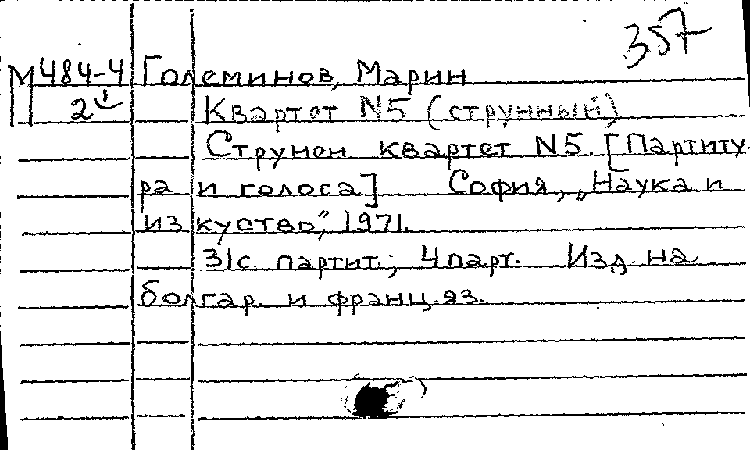 357
М484-4 Големинов, Марин
2 Квартет N5 (струнный)
Струнен квартет N5. [Партиту-
ра и голоса] София, „Наука и
изкуство", 1971.
31с партит.; 4 парт. Изд на
болгар. и франц. яз.